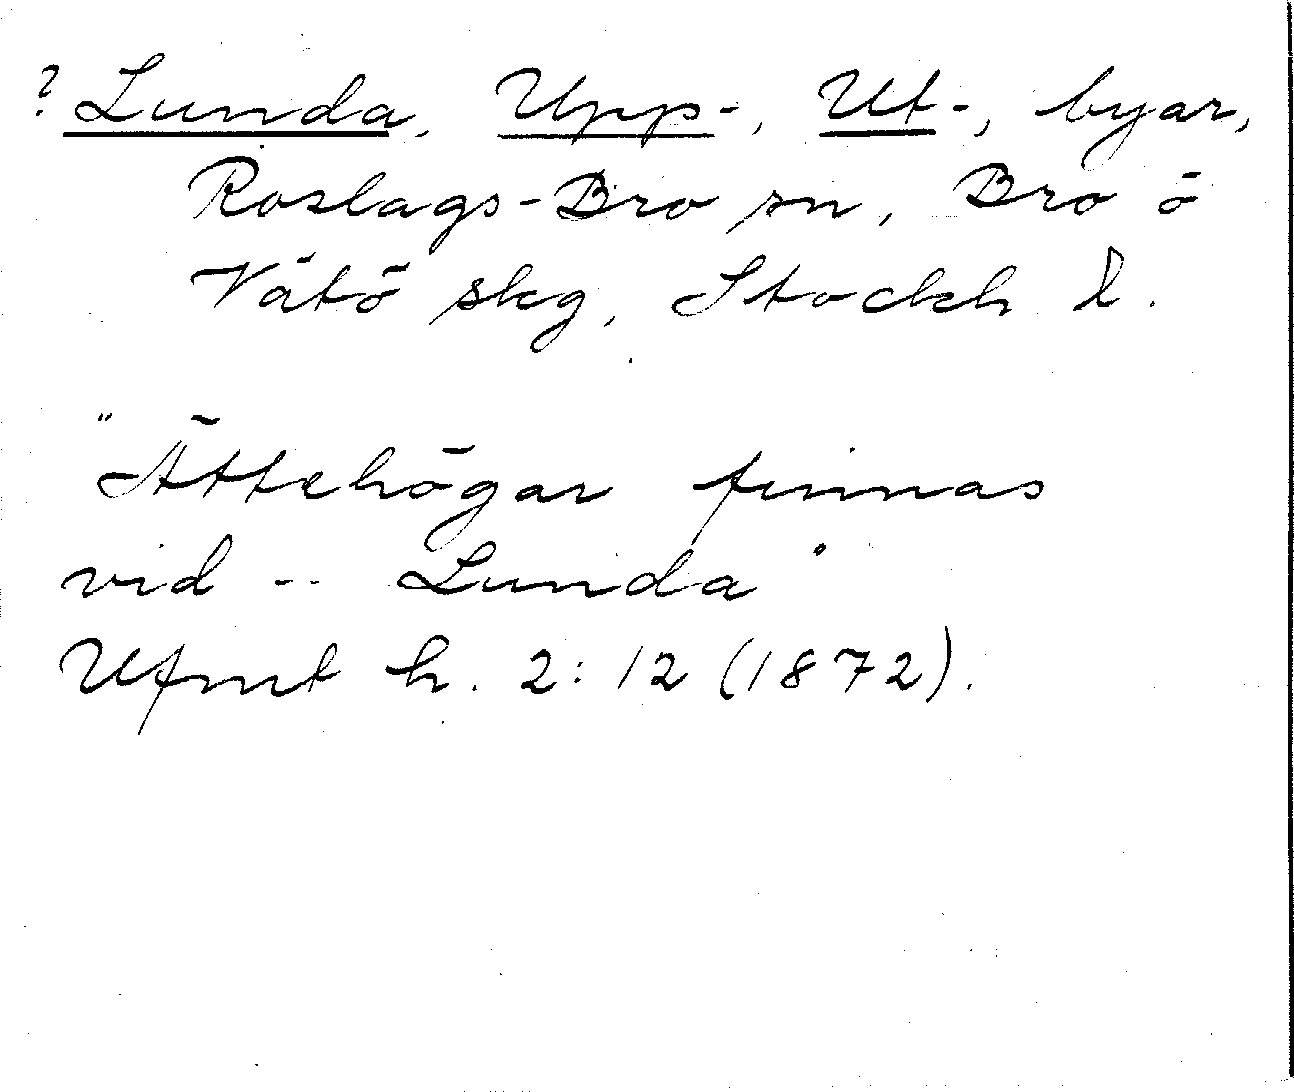 ? Lunda, Upp-, Ut-, byar,
Roslags-Bro sn, Bro ō
Vätö skg, Stockh l.
"Ättehögar finnas
vid -- Lunda"
Ufmt h. 2:12 (1872).